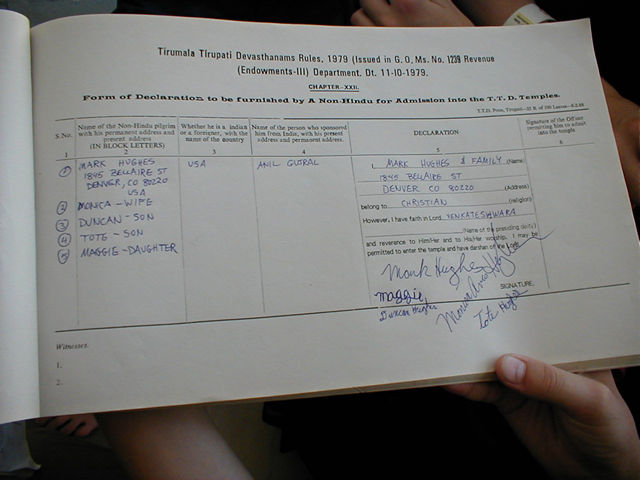 Tirumala Tirupati Devasthanams Rules, 1979 (Issued in G. O. Ms. No. 1239 Revenue
(Endowments-III) Department. Dt. 11-10-1979.
CHAPTER-XXII.
Form of Declaration to be furnished by A Non-Hindu for Admission into the T.T.D. Temples.
S.No.
Name of the Non-Hindu pilgrim
with his permanent address and
present address
(IN BLOCK LETTERS)
Whether he is a indian
or a foreigner, with the
name of the country
Name of the person who sponsored
him from India, with his present
& permanent address.
DECLARATION
Signature of the Officer
permitting him to admit
into the temple
1
2
3
4
5
6
1 MARK HUGHES
1845 BELLAIRE ST
DENVER, CO 80220
USA
2 MONICA - WIFE
3 DUNCAN - SON
4 TOTE - SON
5 MAGGIE - DAUGHTER
USA
ANIL GUTRAL
I, MARK HUGHES & FAMILY (Name)
1845 BELLAIRE ST
DENVER CO 80220 (Address)
belong to CHRISTIAN (religion)
However, I have faith in Lord VENKATESHWARA
(Name of the presiding deity)
and reverence to Him/Her and to His/Her worship. I may be
permitted to enter the temple and have darshan of the Lord.
Mark Hughes
maggie
Duncan Hughes
Tote Hughes
SIGNATURE.
Witnesses.
1.
2.